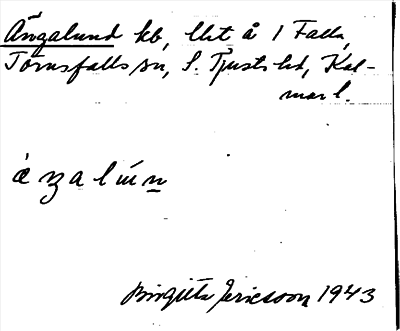 Ängalund kb, lht å 1 Falla,
Törnsfalls sn, S. Tjusts hd, Kal-
mar l.
Birgitta Ericsson 1943